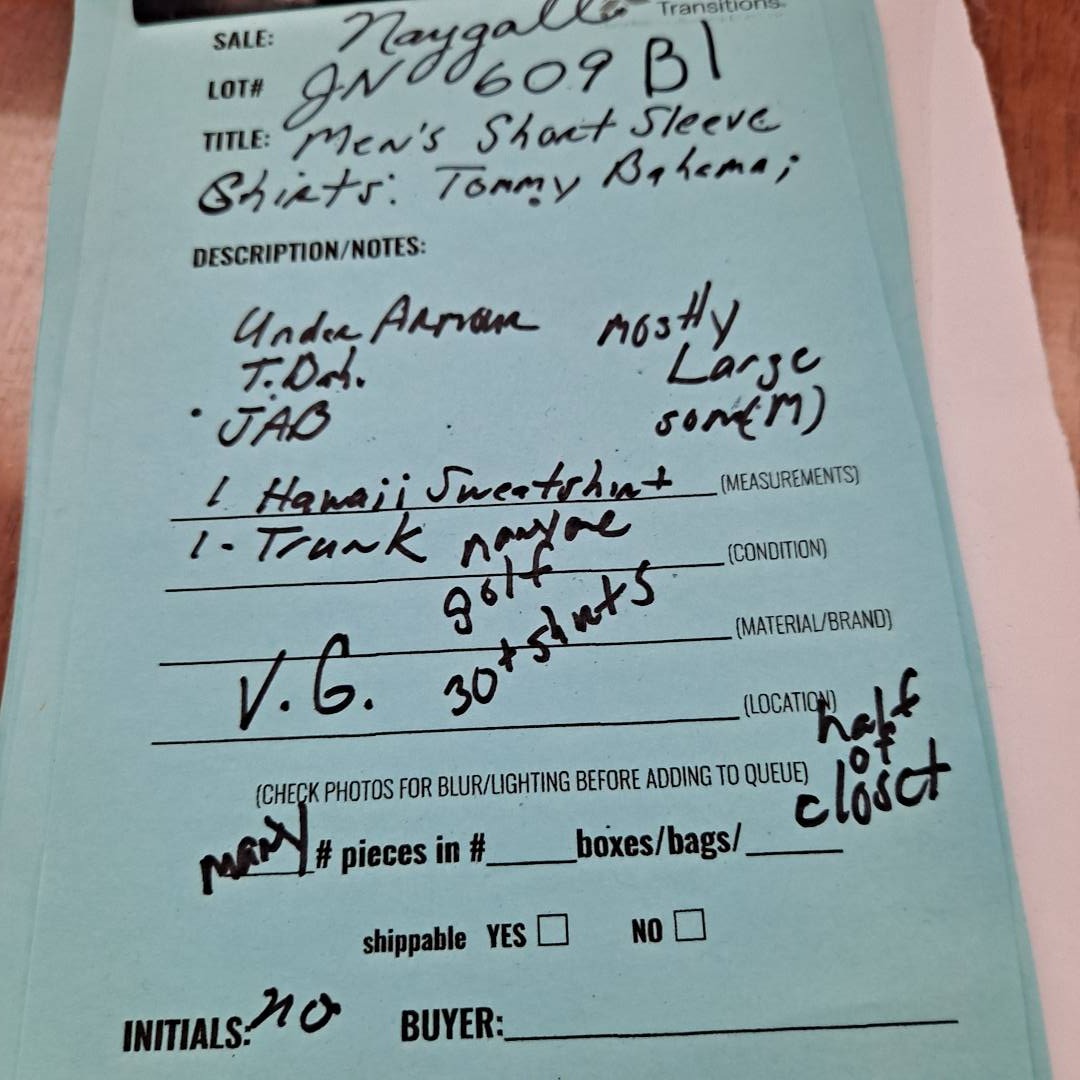 Transitions
SALE: Naygall
LOT# JN 609 B1
TITLE: Men's Short Sleeve
Shirts: Tommy Bahama;
DESCRIPTION/NOTES:
Under Armour mostly
T. Bah. Large
• JAB some(M)
1. Hawaii Sweatshirt (MEASUREMENTS)
1 - Trunk
(CONDITION)
golf
30+ shirts (MATERIAL/BRAND)
V.G.
(LOCATION)
half
of
closet
(CHECK PHOTOS FOR BLUR/LIGHTING BEFORE ADDING TO QUEUE)
many # pieces in #____boxes/bags/____
shippable YES ☐ NO ☐
INITIALS: BUYER:____